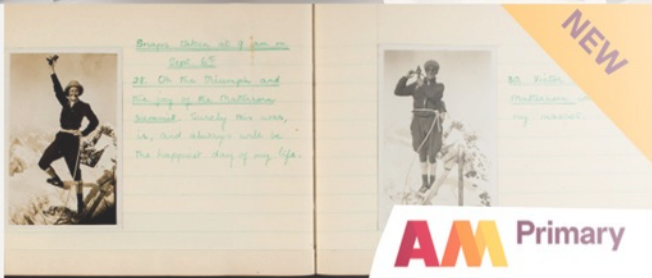 Snaps taken at 9 am on
Sept. 6th
28. Oh the Triumph and
the joy of the Matterhorn
Summit. Surely this was,
is, and always will be
the happiest day of my life.
Victor
Matterhorn
my mascot.
NEW
AM Primary